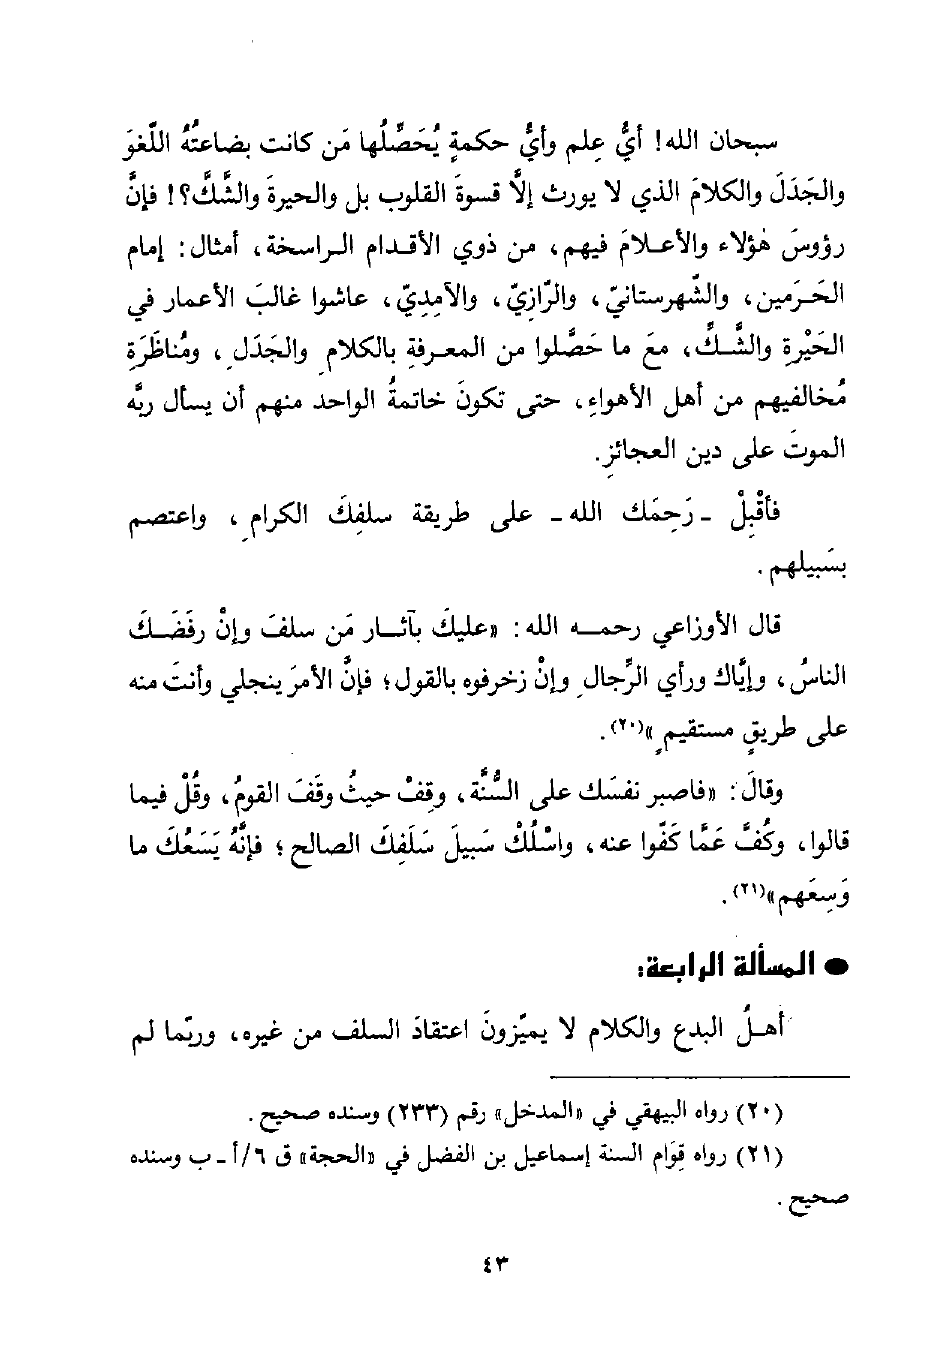 سبحان الله! أيُّ عِلم وأيُّ حكمةٍ يُحَصِّلُها مَن كانت بضاعتُهُ اللَّغوَ
والجَدَلَ والكلامَ الذي لا يورث إلاَّ قسوةَ القلوب بل والحيرةَ والشَّكَّ؟! فإنَّ
رؤوسَ هؤلاء والأعلامَ فيهم، من ذوي الأقدام الراسخة، أمثال: إمام
الحَرَمين، والشَّهرستانيّ، والرَّازيّ، والآمِديّ، عاشوا غالبَ الأعمار في
الحَيْرةِ والشَّكِّ، معَ ما حَصَّلوا من المعرفةِ بالكلامِ والجَدَلِ، ومُناظَرَةِ
مُخالفيهم من أهل الأهواءِ، حتى تكونَ خاتمةُ الواحد منهم أن يسأل ربَّه
الموتَ على دين العجائزِ.
فأقْبِلْ ـ رَحِمَك الله ـ على طريقة سلفِكَ الكرامِ، واعتصم
بسَبيلهم.
قال الأوزاعي رحمه الله: «عليكَ بآثار مَن سلفَ وإنْ رفَضَكَ
الناسُ، وإيَّاك ورأي الرِّجالِ وإنْ زخرفوه بالقول؛ فإنَّ الأمرَ ينجلي وأنتَ منه
على طريقٍ مستقيمٍ»(٢٠).
وقالَ: «فاصبر نفسَك على السُّنَّة، وقِفْ حيثُ وقَفَ القومُ، وقُلْ فيما
قالوا، وكُفَّ عَمَّا كَفّوا عنه، واسْلُكْ سَبيلَ سَلَفِكَ الصالح؛ فإنَّهُ يَسَعُكَ ما
وَسِعَهم»(٢١).
● المسألة الرابعة:
أهلُ البدع والكلام لا يميّزونَ اعتقادَ السلف من غيره، وربّما لم
(٢٠) رواه البيهقي في «المدخل» رقم (٢٣٣) وسنده صحيح.
(٢١) رواه قِوَام السنة إسماعيل بن الفضل في «الحجة» ق ٦/أ ـ ب وسنده
صحيح.
٤٣